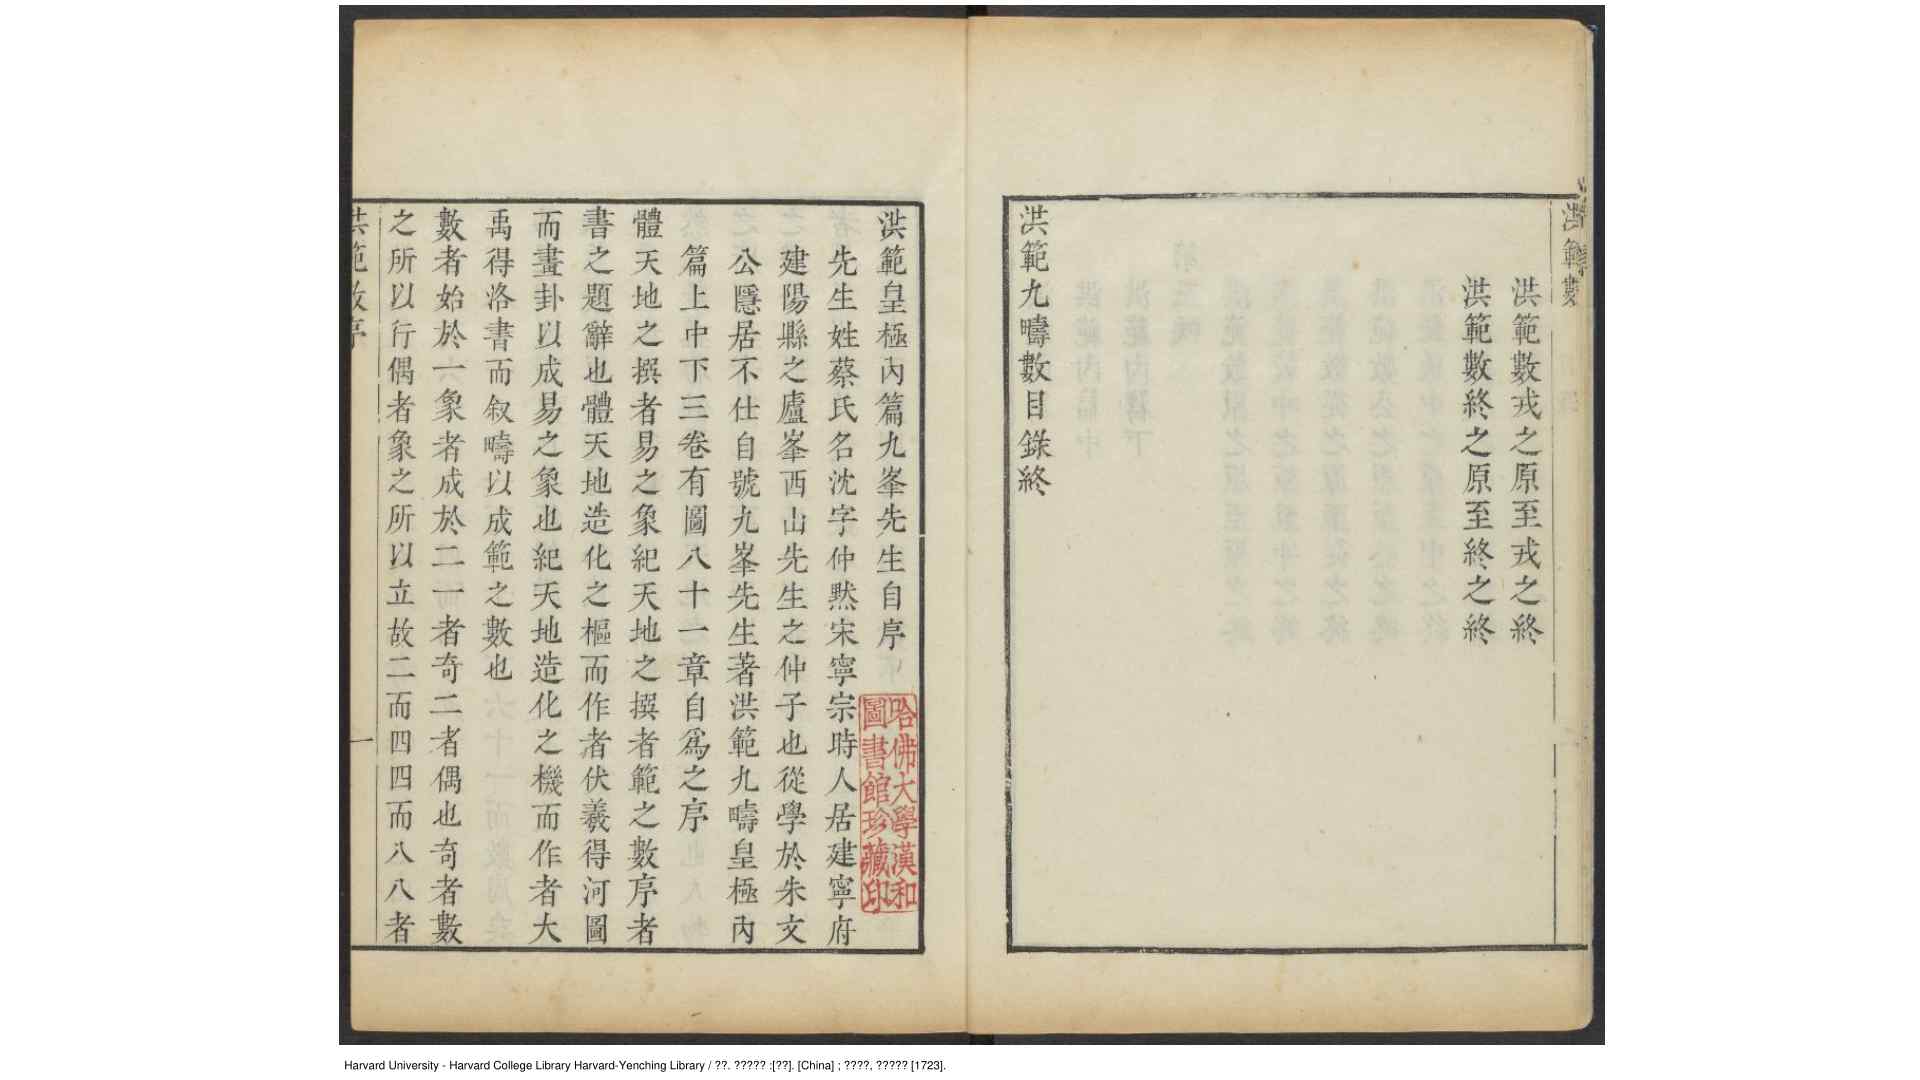 洪範數
洪範數戎之原至戎之終
洪範數終之原至終之終
洪範九疇數目錄終
洪範皇極內篇九峯先生自序
哈佛大學漢和
圖書館珍藏印
先生姓蔡氏名沈字仲默宋寧宗時人居建寧府
建陽縣之廬峯西山先生之仲子也從學於朱文
公隱居不仕自號九峯先生著洪範九疇皇極內
篇上中下三卷有圖八十一章自爲之序
體天地之撰者易之象紀天地之撰者範之數序者
書之題辭也體天地造化之樞而作者伏羲得河圖
而畫卦以成易之象也紀天地造化之機而作者大
禹得洛書而叙疇以成範之數也
數者始於一象者成於二一者奇二者偶也奇者數
之所以行偶者象之所以立故二而四四而八八者
洪範數序
一
Harvard University - Harvard College Library Harvard-Yenching Library / ??. ????? :[??]. [China] ; ????, ????? [1723].